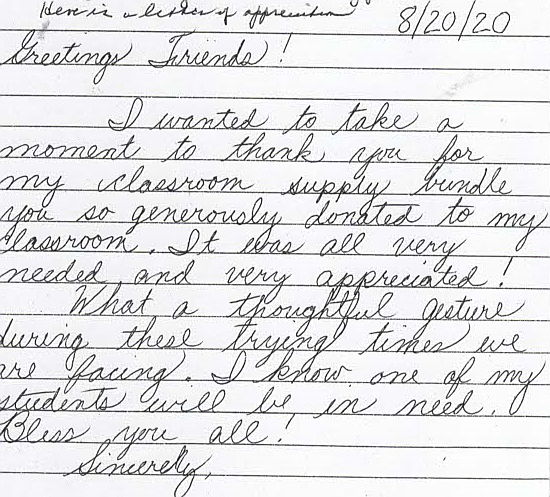 Here is a letter of appreciation
8/20/20
Greetings Friends!
I wanted to take a
moment to thank you for
my classroom supply bundle
you so generously donated to my
classroom. It was all very
needed and very appreciated!
What a thoughtful gesture
during these trying times we
are facing. I know one of my
students will be in need.
Bless you all!
Sincerely,